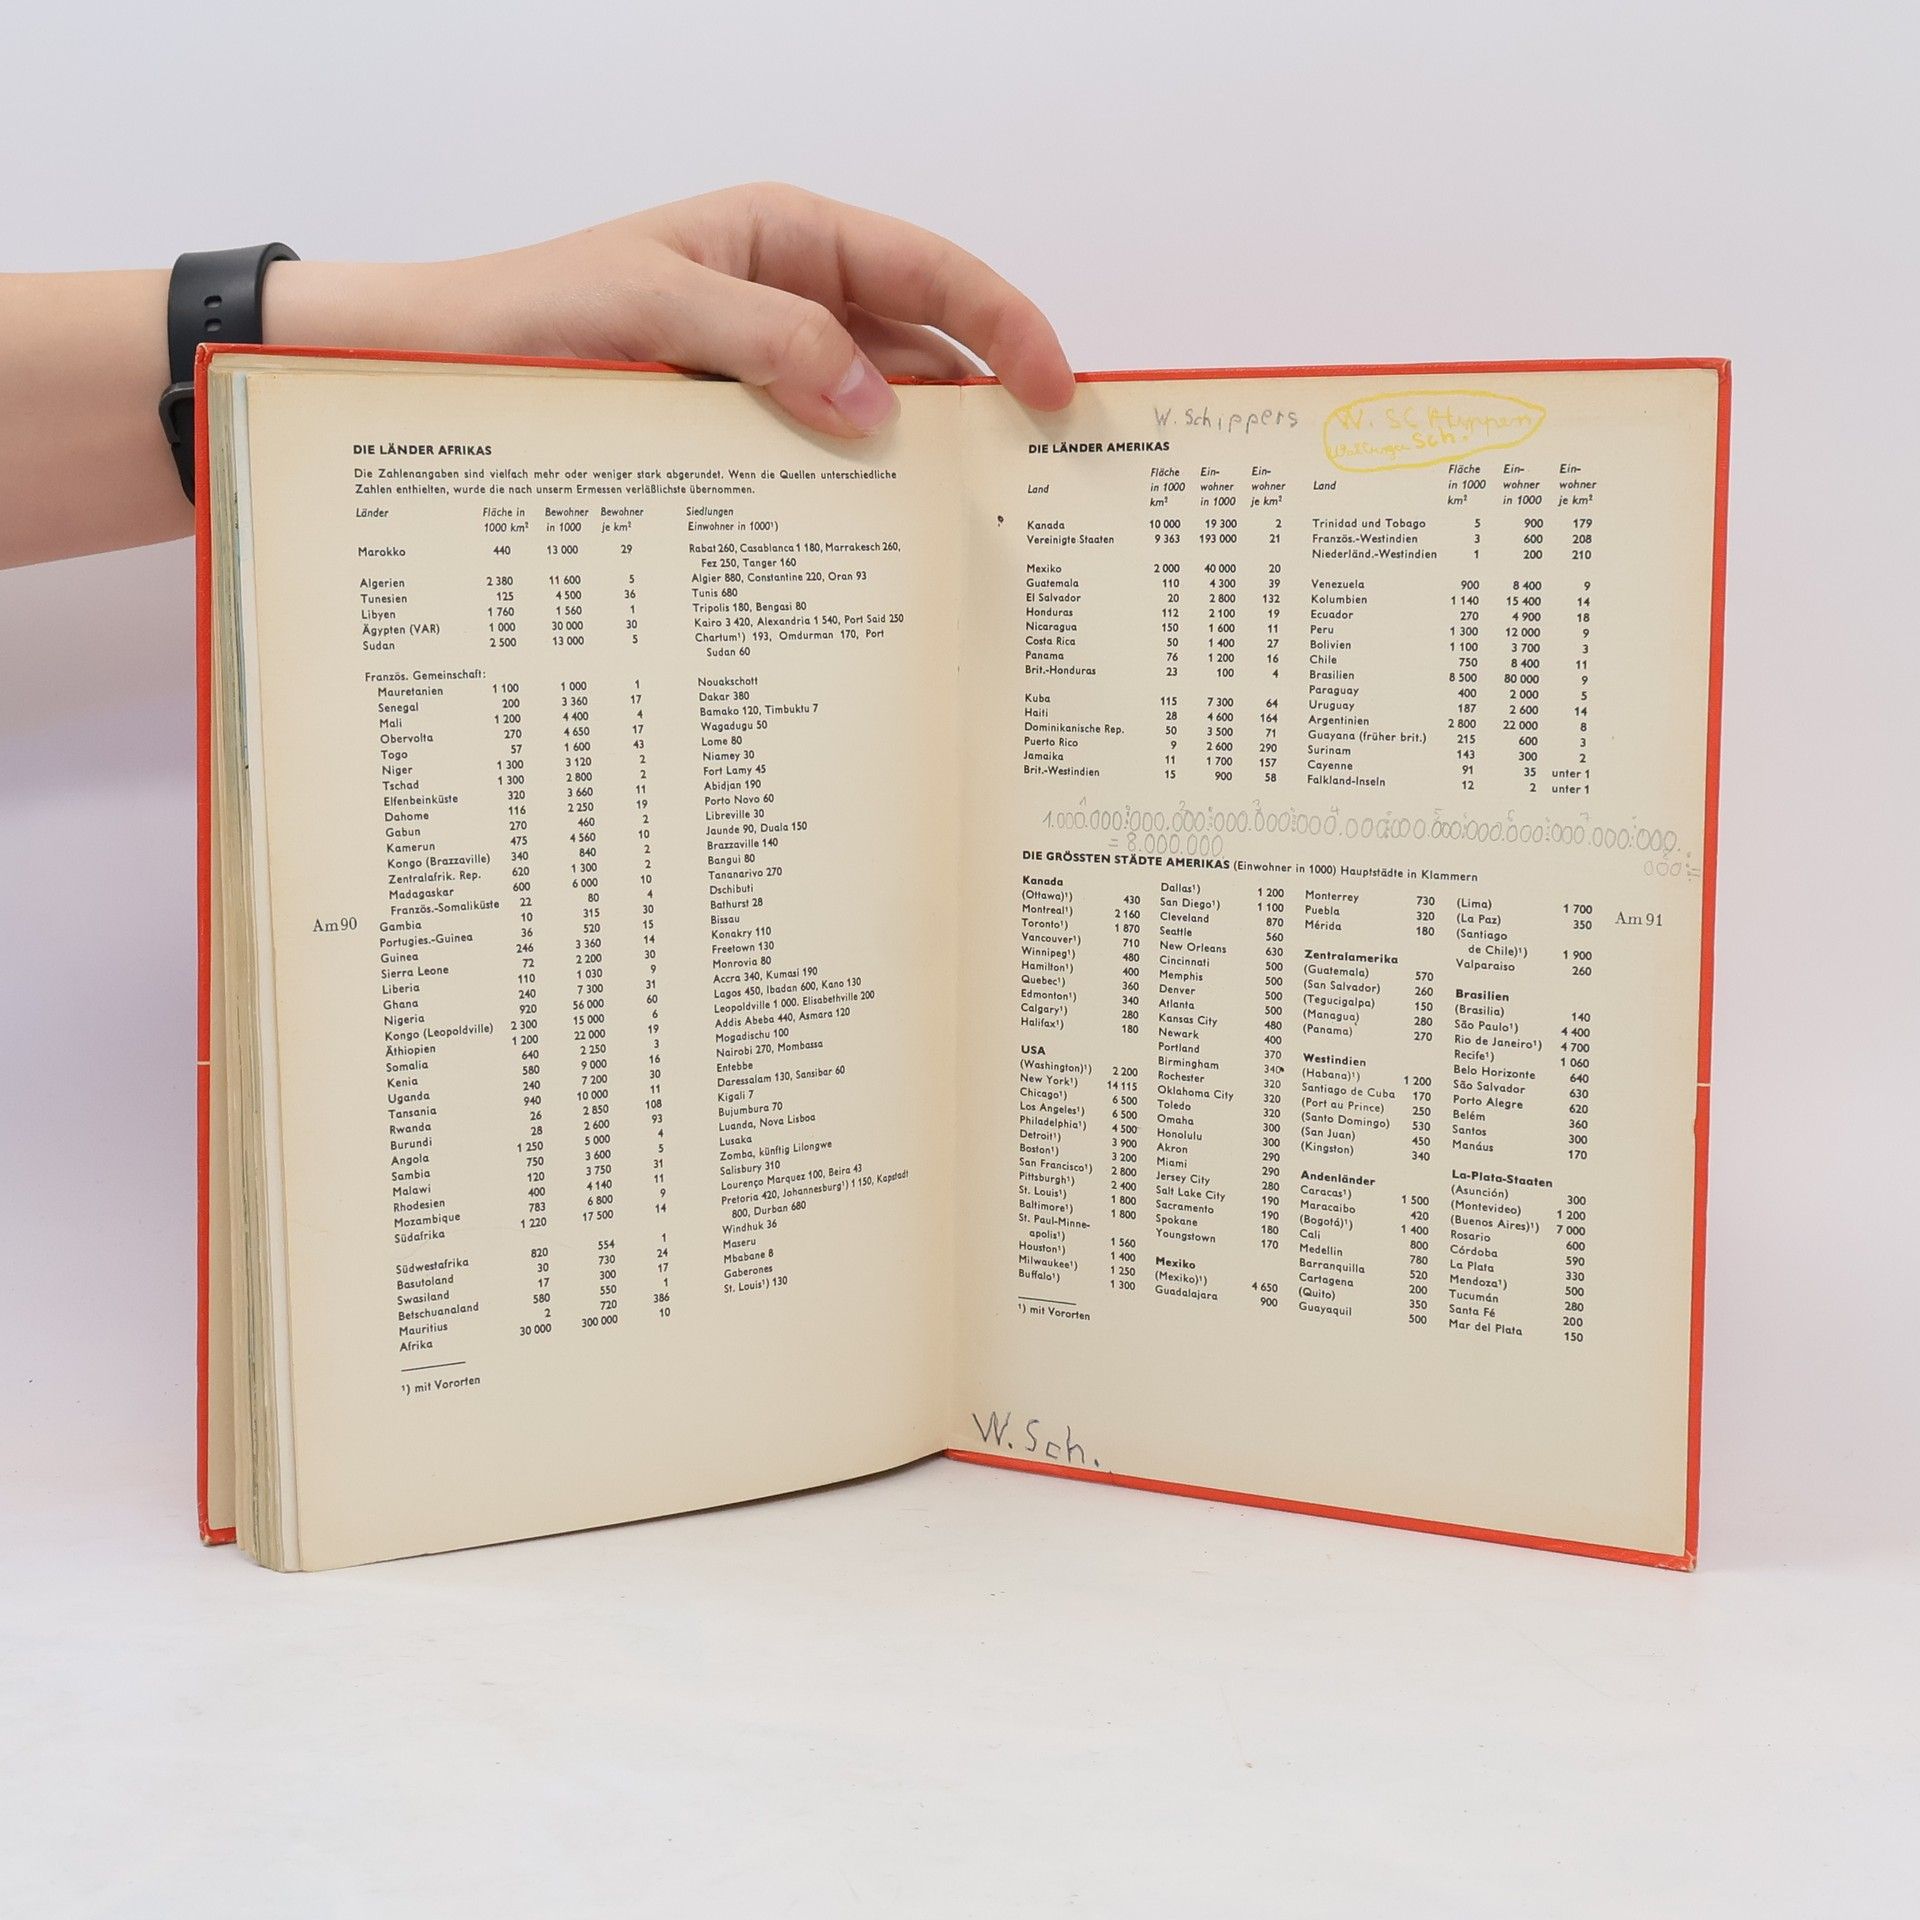 DIE LÄNDER AFRIKAS
Die Zahlenangaben sind vielfach mehr oder weniger stark abgerundet. Wenn die Quellen unterschiedliche
Zahlen enthielten, wurde die nach unserm Ermessen verläßlichste übernommen.
Länder Fläche in Bewohner Bewohner Siedlungen
1000 km² in 1000 je km² Einwohner in 1000¹)
Marokko 440 13 000 29 Rabat 260, Casablanca 1 180, Marrakesch 260,
Fez 250, Tanger 160
Algerien 2 380 11 600 5 Algier 880, Constantine 220, Oran 93
Tunesien 125 4 500 36 Tunis 680
Libyen 1 760 1 560 1 Tripolis 180, Bengasi 80
Ägypten (VAR) 1 000 30 000 30 Kairo 3 420, Alexandria 1 540, Port Said 250
Sudan 2 500 13 000 5 Chartum¹) 193, Omdurman 170, Port
Sudan 60
Französ. Gemeinschaft:
Mauretanien 1 100 1 000 1 Nouakschott
Senegal 200 3 360 17 Dakar 380
Mali 1 200 4 400 4 Bamako 120, Timbuktu 7
Obervolta 270 4 650 17 Wagadugu 50
Togo 57 1 600 43 Lome 80
Niger 1 300 3 120 2 Niamey 30
Tschad 1 300 2 800 2 Fort Lamy 45
Elfenbeinküste 320 3 660 11 Abidjan 190
Dahome 116 2 250 19 Porto Novo 60
Gabun 270 460 2 Libreville 30
Kamerun 475 4 560 10 Jaunde 90, Duala 150
Kongo (Brazzaville) 340 840 2 Brazzaville 140
Zentralafrik. Rep. 620 1 300 2 Bangui 80
Madagaskar 600 6 000 10 Tananarivo 270
Französ.-Somaliküste 22 80 4 Dschibuti
Gambia 10 315 30 Bathurst 28
Portugies.-Guinea 36 520 15 Bissau
Guinea 246 3 360 14 Konakry 110
Sierra Leone 72 2 200 30 Freetown 130
Liberia 110 1 030 9 Monrovia 80
Ghana 240 7 300 31 Accra 340, Kumasi 190
Nigeria 920 56 000 60 Lagos 450, Ibadan 600, Kano 130
Kongo (Leopoldville) 2 300 15 000 6 Leopoldville 1 000. Elisabethville 200
Äthiopien 1 200 22 000 19 Addis Abeba 440, Asmara 120
Somalia 640 2 250 3 Mogadischu 100
Kenia 580 9 000 16 Nairobi 270, Mombassa
Uganda 240 7 200 30 Entebbe
Tansania 940 10 000 11 Daressalam 130, Sansibar 60
Rwanda 26 2 850 108 Kigali 7
Burundi 28 2 600 93 Bujumbura 70
Angola 1 250 5 000 4 Luanda, Nova Lisboa
Sambia 750 3 600 5 Lusaka
Malawi 120 3 750 31 Zomba, künftig Lilongwe
Rhodesien 400 4 140 11 Salisbury 310
Mozambique 783 6 800 9 Lourenço Marquez 100, Beira 43
Südafrika 1 220 17 500 14 Pretoria 420, Johannesburg¹) 1 150, Kapstadt
800, Durban 680
Südwestafrika 820 554 1 Windhuk 36
Basutoland 30 730 24 Maseru
Swasiland 17 300 17 Mbabane 8
Betschuanaland 580 550 1 Gaberones
Mauritius 2 720 386 St. Louis¹) 130
Afrika 30 000 300 000 10
¹) mit Vororten
Am 90
W. Schippers
DIE LÄNDER AMERIKAS
Land Fläche in 1000 km² Ein-wohner in 1000 Ein-wohner je km²
Kanada 10 000 19 300 2
Vereinigte Staaten 9 363 193 000 21
Mexiko 2 000 40 000 20
Guatemala 110 4 300 39
El Salvador 20 2 800 132
Honduras 112 2 100 19
Nicaragua 150 1 600 11
Costa Rica 50 1 400 27
Panama 76 1 200 16
Brit.-Honduras 23 100 4
Kuba 115 7 300 64
Haiti 28 4 600 164
Dominikanische Rep. 50 3 500 71
Puerto Rico 9 2 600 290
Jamaika 11 1 700 157
Brit.-Westindien 15 900 58
Land Fläche in 1000 km² Ein-wohner in 1000 Ein-wohner je km²
Trinidad und Tobago 5 900 179
Französ.-Westindien 3 600 208
Niederländ.-Westindien 1 200 210
Venezuela 900 8 400 9
Kolumbien 1 140 15 400 14
Ecuador 270 4 900 18
Peru 1 300 12 000 9
Bolivien 1 100 3 700 3
Chile 750 8 400 11
Brasilien 8 500 80 000 9
Paraguay 400 2 000 5
Uruguay 187 2 600 14
Argentinien 2 800 22 000 8
Guayana (früher brit.) 215 600 3
Surinam 143 300 2
Cayenne 91 35 unter 1
Falkland-Inseln 12 2 unter 1
= 8.000.000
DIE GRÖSSTEN STÄDTE AMERIKAS (Einwohner in 1000) Hauptstädte in Klammern
Kanada
(Ottawa¹) 430
Montreal¹) 2 160
Toronto¹) 1 870
Vancouver¹) 710
Winnipeg¹) 480
Hamilton¹) 400
Quebec¹) 360
Edmonton¹) 340
Calgary¹) 280
Halifax¹) 180
USA
(Washington¹) 2 200
New York¹) 14 115
Chicago¹) 6 500
Los Angeles¹) 6 500
Philadelphia¹) 4 500
Detroit¹) 3 900
Boston¹) 3 200
San Francisco¹) 2 800
Pittsburgh¹) 2 400
St. Louis¹) 1 800
Baltimore¹) 1 800
St. Paul-Minne-
apolis¹) 1 560
Houston¹) 1 400
Milwaukee¹) 1 250
Buffalo¹) 1 300
¹) mit Vororten
Dallas¹) 1 200
San Diego¹) 1 100
Cleveland 870
Seattle 560
New Orleans 630
Cincinnati 500
Memphis 500
Denver 500
Atlanta 500
Kansas City 480
Newark 400
Portland 370
Birmingham 340
Rochester 320
Oklahoma City 320
Toledo 320
Omaha 300
Honolulu 300
Akron 290
Miami 290
Jersey City 280
Salt Lake City 190
Sacramento 190
Spokane 180
Youngstown 170
Mexiko
(Mexiko)¹) 4 650
Guadalajara 900
Monterrey 730
Puebla 320
Mérida 180
Zentralamerika
(Guatemala) 570
(San Salvador) 260
(Tegucigalpa) 150
(Managua) 280
(Panama) 270
Westindien
(Habana)¹) 1 200
Santiago de Cuba 170
(Port au Prince) 250
(Santo Domingo) 530
(San Juan) 450
(Kingston) 340
Andenländer
Caracas¹) 1 500
Maracaibo 420
(Bogotá)¹) 1 400
Cali 800
Medellin 780
Barranquilla 520
Cartagena 200
(Quito) 350
Guayaquil 500
(Lima) 1 700
(La Paz) 350
(Santiago
de Chile)¹) 1 900
Valparaiso 260
Brasilien
(Brasilia) 140
São Paulo¹) 4 400
Rio de Janeiro¹) 4 700
Recife¹) 1 060
Belo Horizonte 640
São Salvador 630
Porto Alegre 620
Belém 360
Santos 300
Manáus 170
La-Plata-Staaten
(Asunción) 300
(Montevideo) 1 200
(Buenos Aires)¹) 7 000
Rosario 600
Córdoba 590
La Plata 330
Mendoza¹) 500
Tucumán 280
Santa Fé 200
Mar del Plata 150
Am 91
W. Sch.